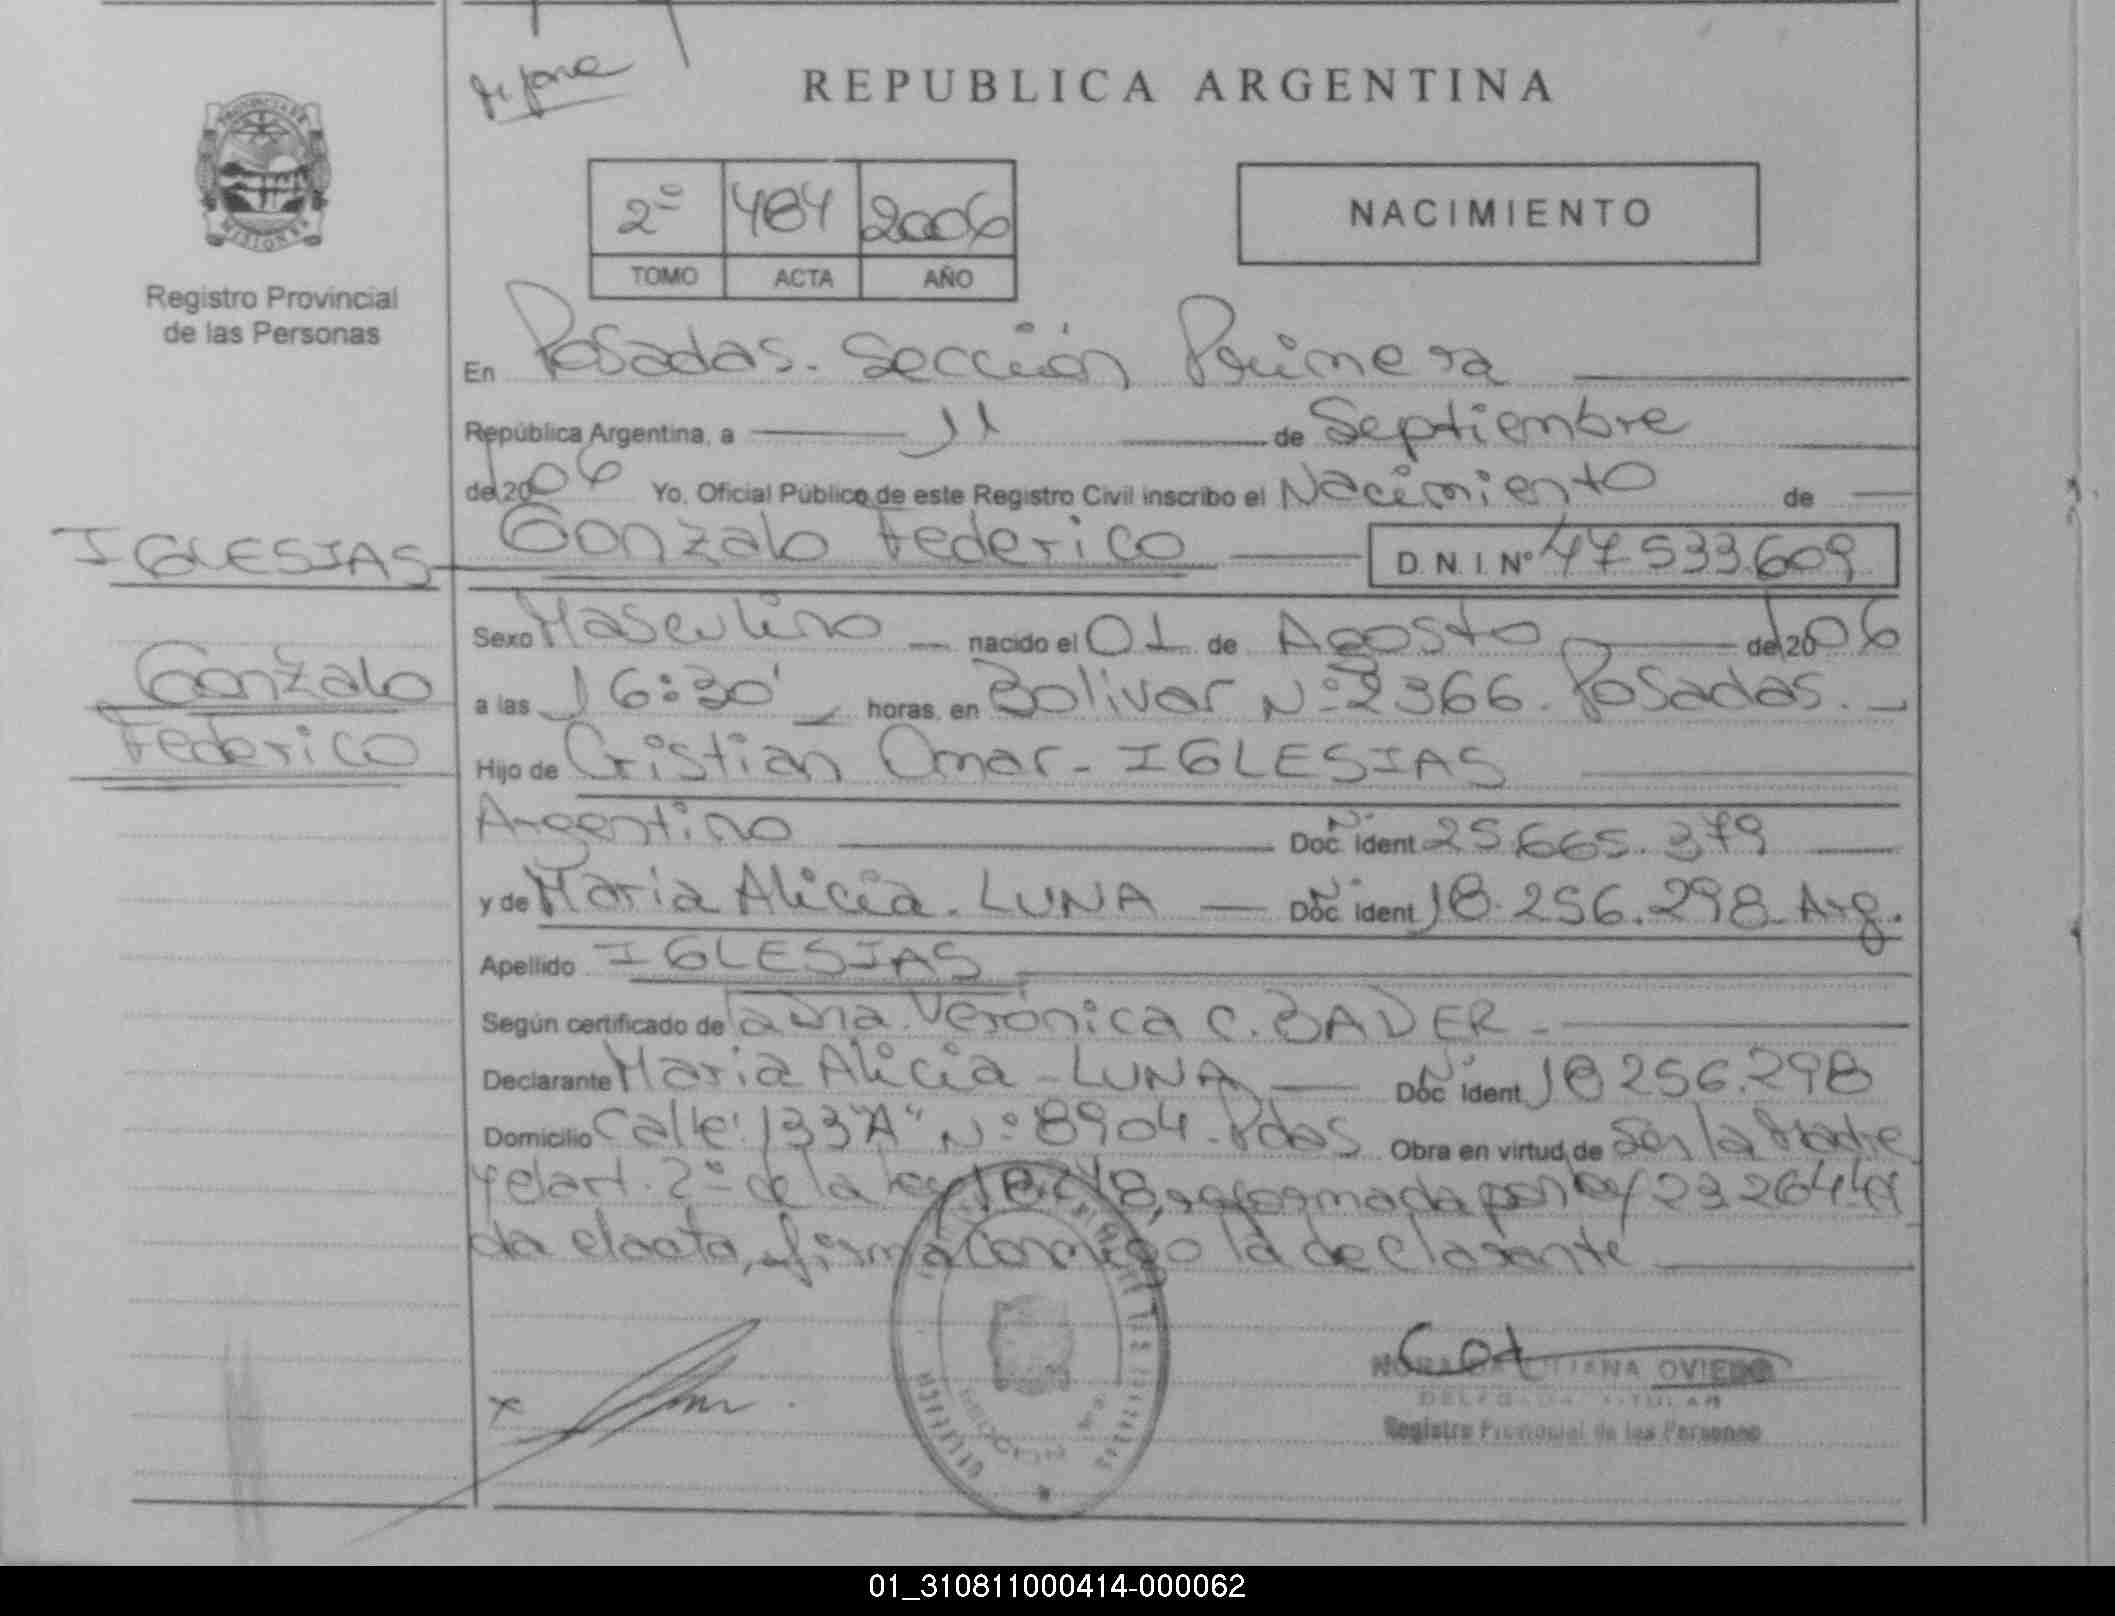 REPUBLICA ARGENTINA
2º 484 2006
TOMO ACTA AÑO
NACIMIENTO
PROVINCIA DE
MISIONES
Registro Provincial
de las Personas
En Posadas. Sección Primera
República Argentina, a 11 de Septiembre
del 2006 Yo, Oficial Público de este Registro Civil inscribo el Nacimiento de
IGLESIAS Gonzalo Federico D.N.I. Nº 47533.609
Sexo Masculino nacido el 01 de Agosto del 2006
Gonzalo
Federico
a las 16:30' horas, en Bolivar Nº 2366. Posadas.
Hijo de Cristian Omar - IGLESIAS
Argentino Doc. Nº Ident. 25.665.379
y de Maria Alicia. LUNA Doc. Nº Ident. 18.256.298 Arg.
Apellido IGLESIAS
Según certificado de la Dra. Verónica C. BADER
Declarante Maria Alicia - LUNA Doc. Nº Ident. 18 256.298
Domicilio Calle: 133 "A" Nº 8904 - Pdas Obra en virtud de Ser la Madre
y el art. 2º de la ley 18.248, reformada por ley 23264
da el acta, firma conmigo la declarante
x
OVIEDO
DELEGADA TITULAR
Registro Provincial de las Personas
01_310811000414-000062